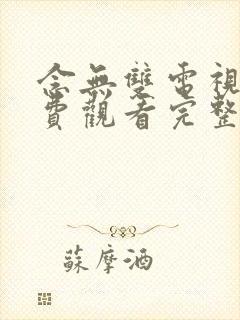 念無雙電視
費觀看完整
蘇摩酒